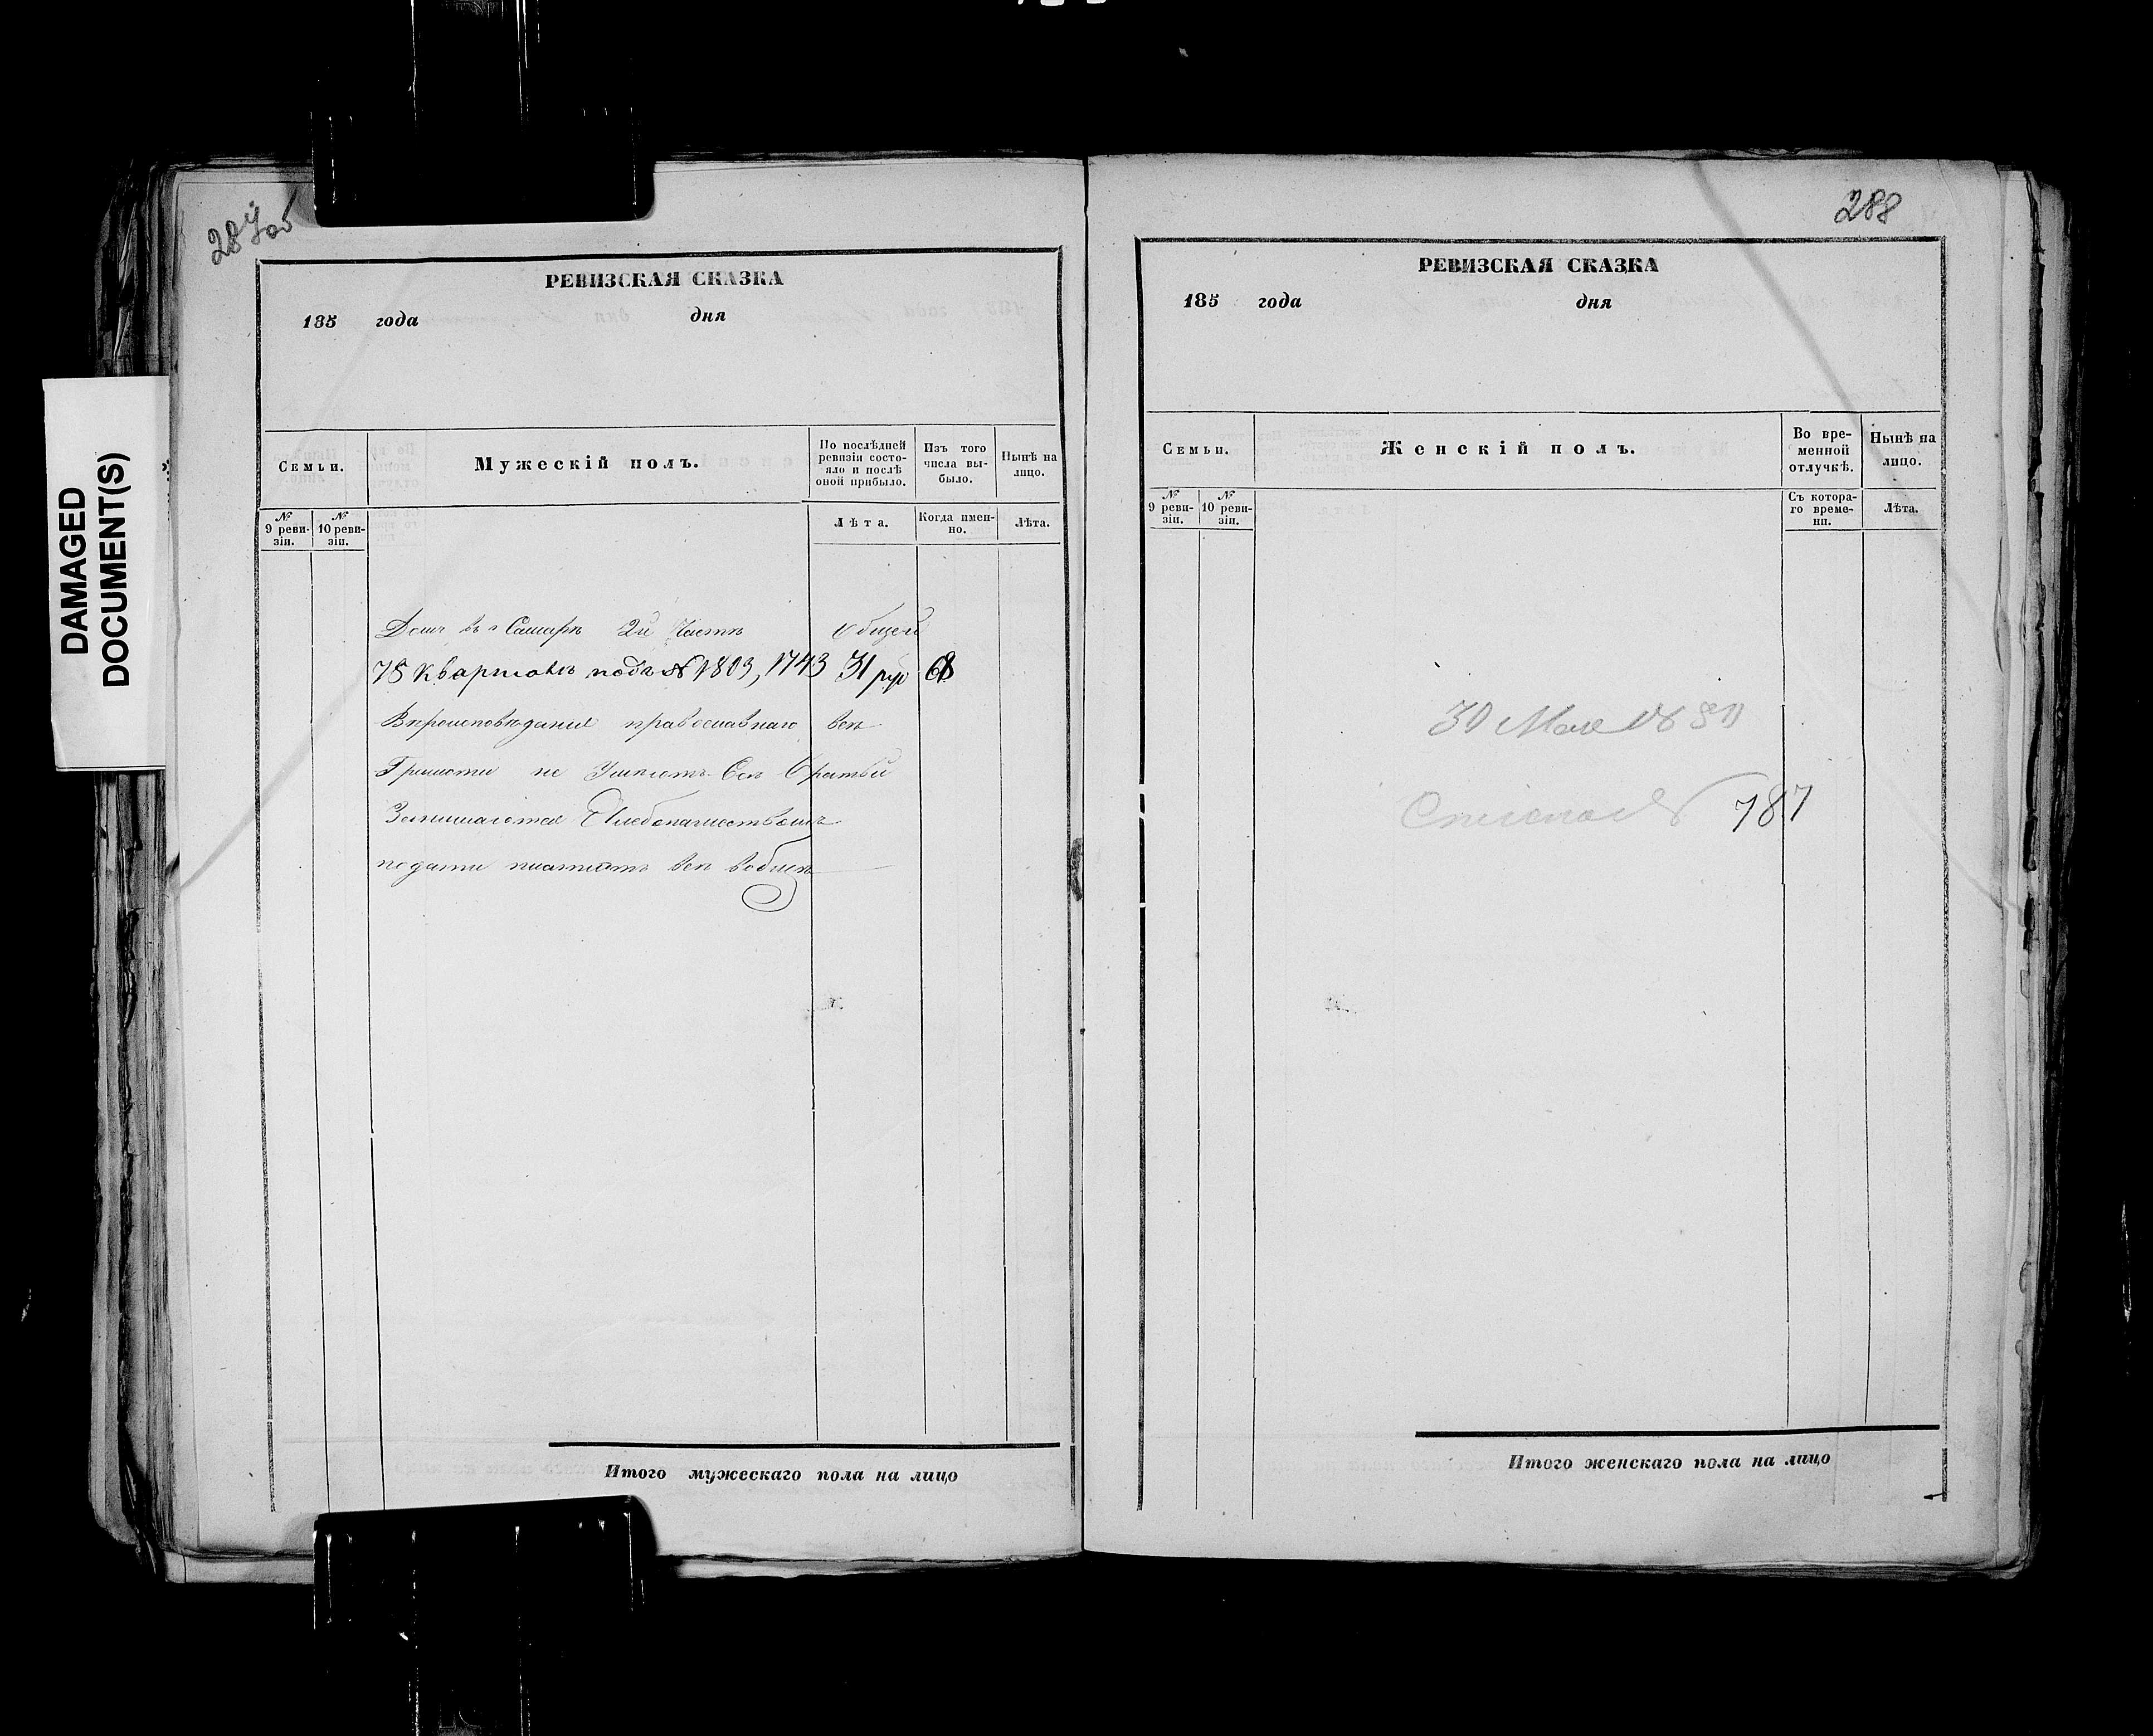 DAMAGED
DOCUMENT(S)
287об
РЕВИЗСКАЯ СКАЗКА
185 года дня
Семьи. Мужескій полъ. По послѣдней ревизіи состояло и послѣ оной прибыло. Изъ того числа выбыло. Нынѣ на лицо.
№ 9 ревизіи. № 10 ревизіи. Лѣта. Когда именно. Лѣта.
Домъ въ г Самарѣ 2й Части общей
78 Кварталъ подъ № 1803, 1743 31 руб 68
Вѣроисповѣданія православнаго всѣ
Грамоти не Умѣютъ Всѣ братьи
Занимаются Хлебопашествомъ
подати платятъ всѣ вобщѣ
Итого мужескаго пола на лицо
288
РЕВИЗСКАЯ СКАЗКА
185 года дня
Семьи. Женскій полъ. Во временной отлучкѣ. Нынѣ на лицо.
№ 9 ревизіи. № 10 ревизіи. Съ котораго времени. Лѣта.
30 Мая
787
Итого женскаго пола на лицо